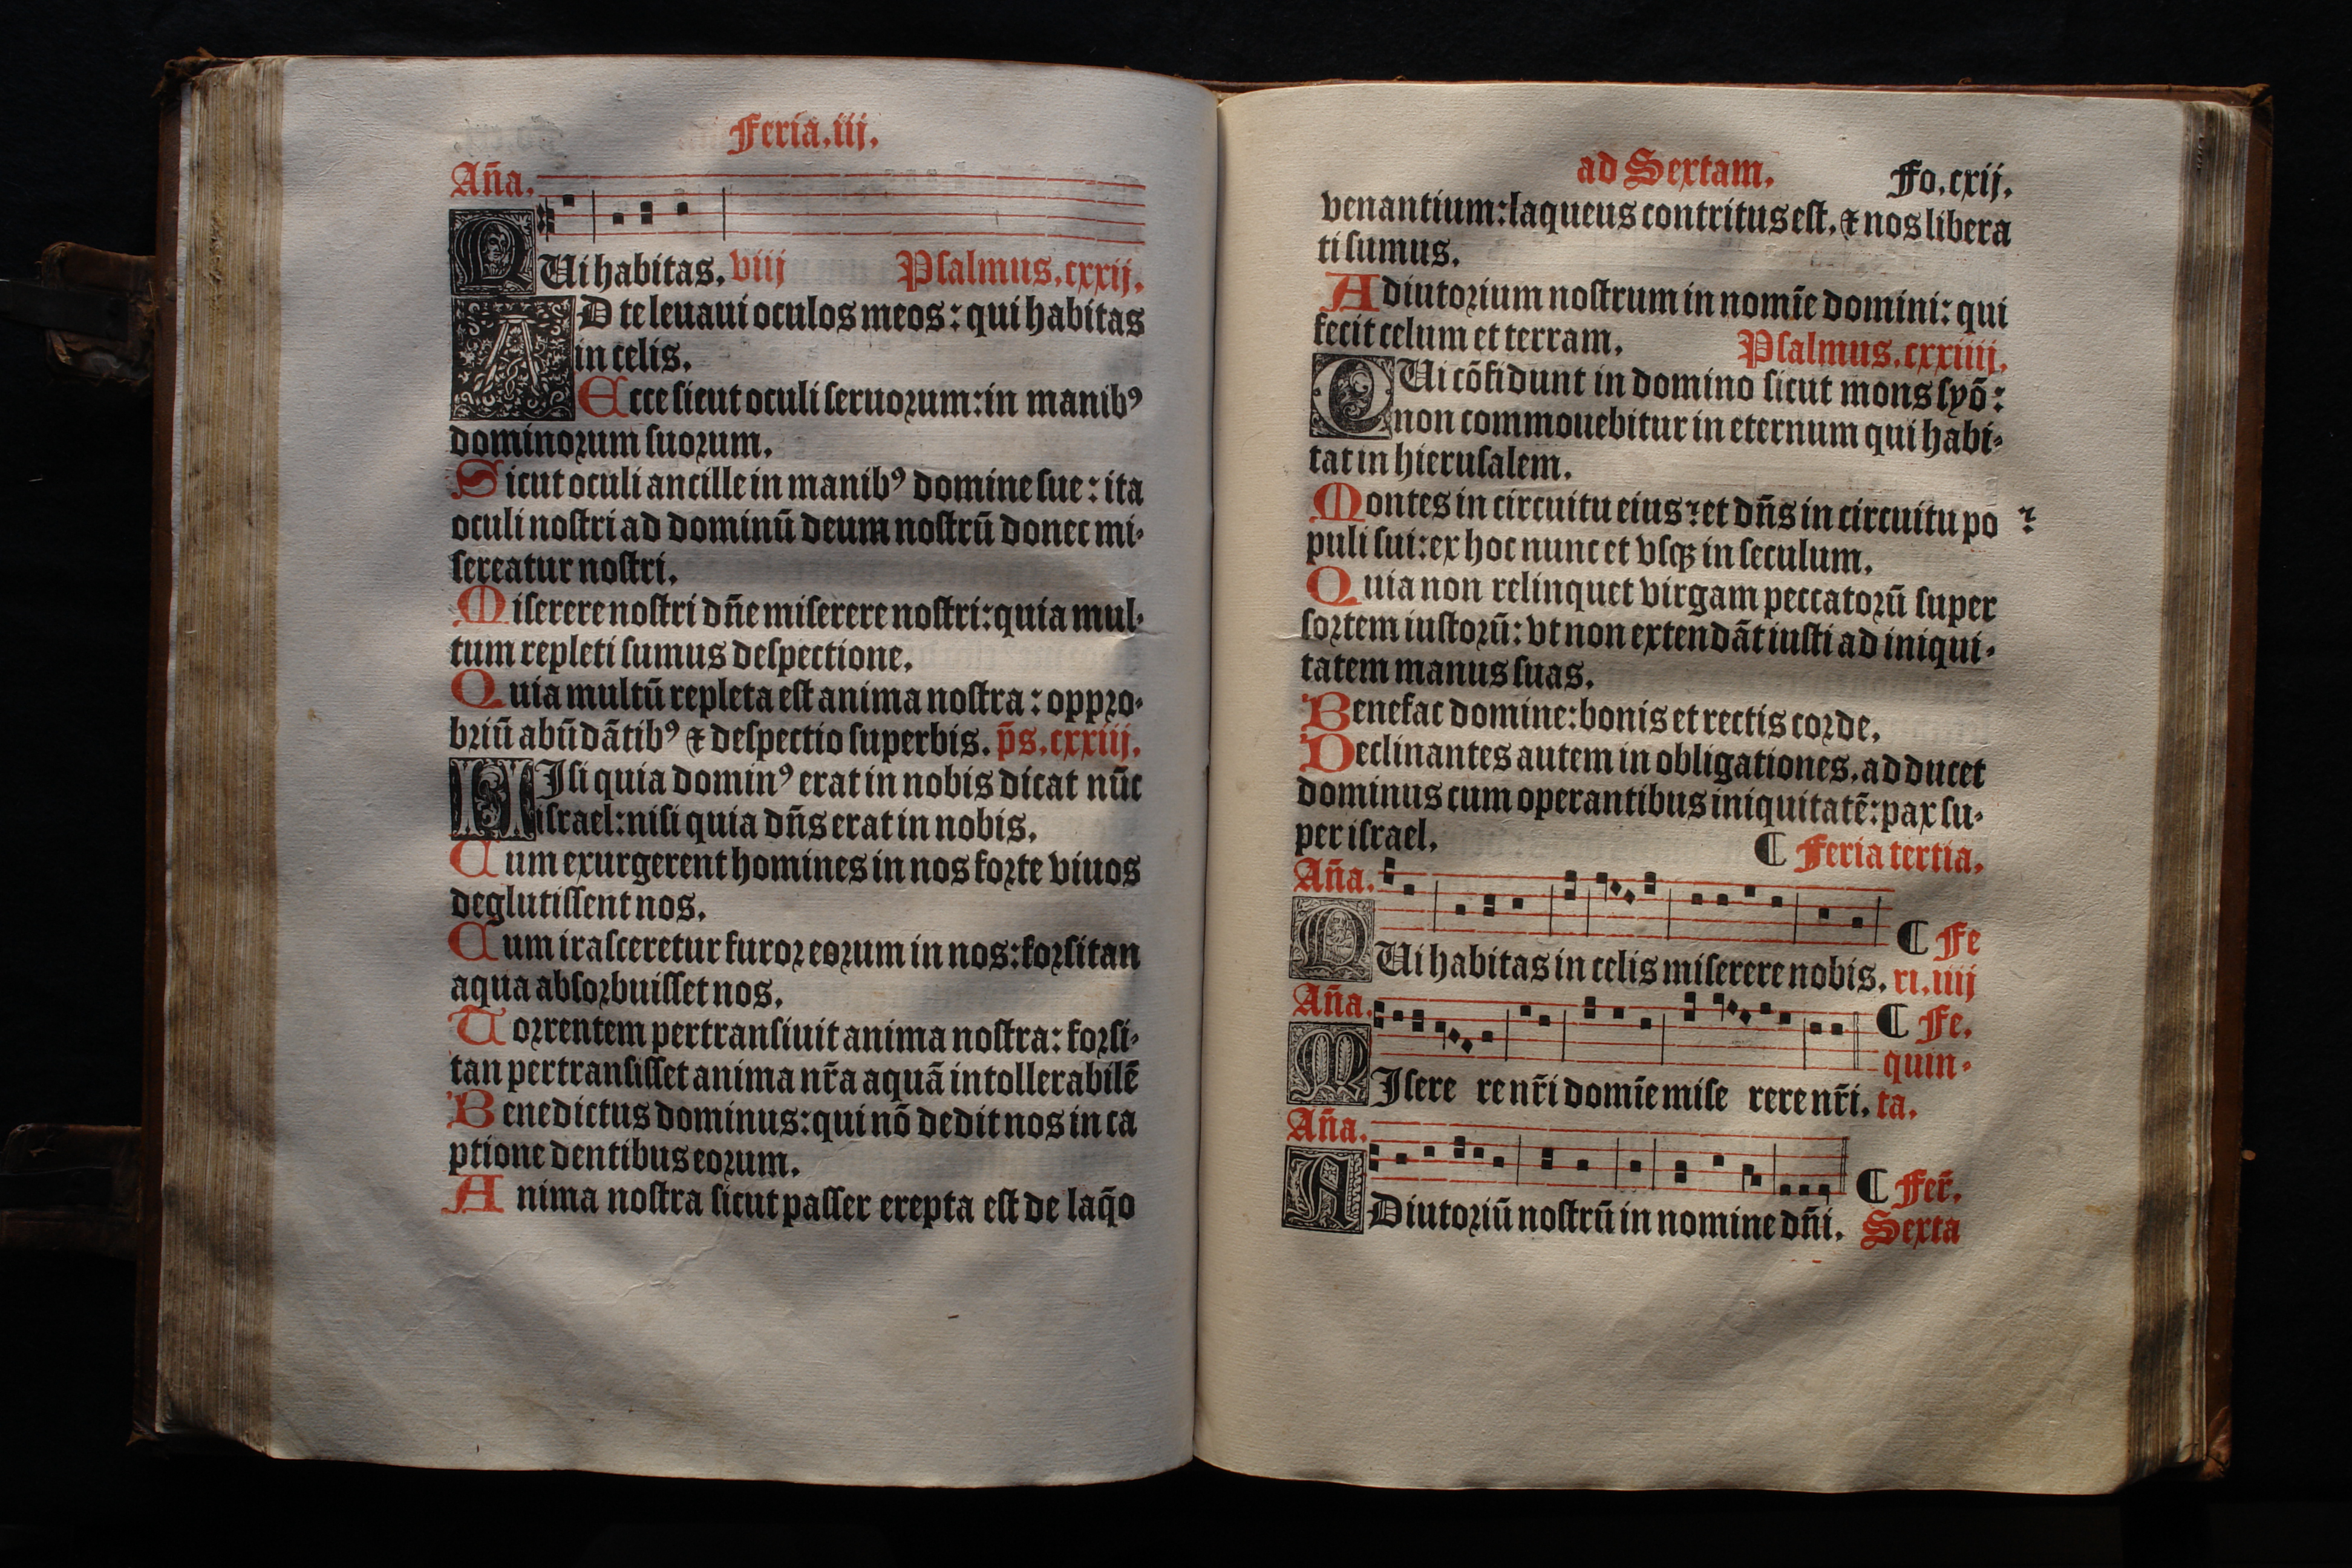 Feria.iij.
An̄a.
QUi habitas. viij Psalmus.cxxij.
AD te leuaui oculos meos: qui habitas
in celis.
Ecce sicut oculi seruorum: in manibꝰ
dominorum suorum.
Sicut oculi ancille in manibꝰ domine sue: ita
oculi nostri ad dominū deum nostrū donec mi-
sereatur nostri.
Miserere nostri dn̄e miserere nostri: quia mul-
tum repleti sumus despectione.
Quia multū repleta est anima nostra: oppro-
briū abūdātibꝰ ⁊ despectio superbis. p̄s.cxxiij.
NIsi quia dominꝰ erat in nobis dicat nūc
israel: nisi quia dn̄s erat in nobis.
Cum exurgerent homines in nos forte viuos
deglutissent nos.
Cum irasceretur furor eorum in nos: forsitan
aqua absorbuisset nos.
Torrentem pertransiuit anima nostra: forsi-
tan pertransisset anima nr̄a aquā intollerabilē
Benedictus dominus: qui nō dedit nos in ca
ptione dentibus eorum.
Anima nostra sicut passer erepta est de laq̄o
ad Sextam. Fo.cxij.
venantium: laqueus contritus est, ⁊ nos libera
ti sumus.
Adiutorium nostrum in nomīe domini: qui
fecit celum et terram. Psalmus.cxxiiij.
QUi cōfidunt in domino sicut mons syō:
non commouebitur in eternum qui habi-
tat in hierusalem.
Montes in circuitu eius: et dn̄s in circuitu po
puli sui: ex hoc nunc et vsqꝫ in seculum.
Quia non relinquet virgam peccatorū super
sortem iustorū: vt non extendāt iusti ad iniqui-
tatem manus suas.
Benefac domine: bonis et rectis corde.
Declinantes autem in obligationes, adducet
dominus cum operantibus iniquitatē: pax su-
per israel. ¶ Feria tertia.
An̄a. ¶ Fe
QUi habitas in celis miserere nobis. ri.iiij
An̄a. ¶ Fe.
quin-
MIsere re nr̄i domīe mise rere nr̄i. ta.
An̄a. ¶ Fer̄.
ADiutoriū nostrū in nomine dn̄i. Sexta